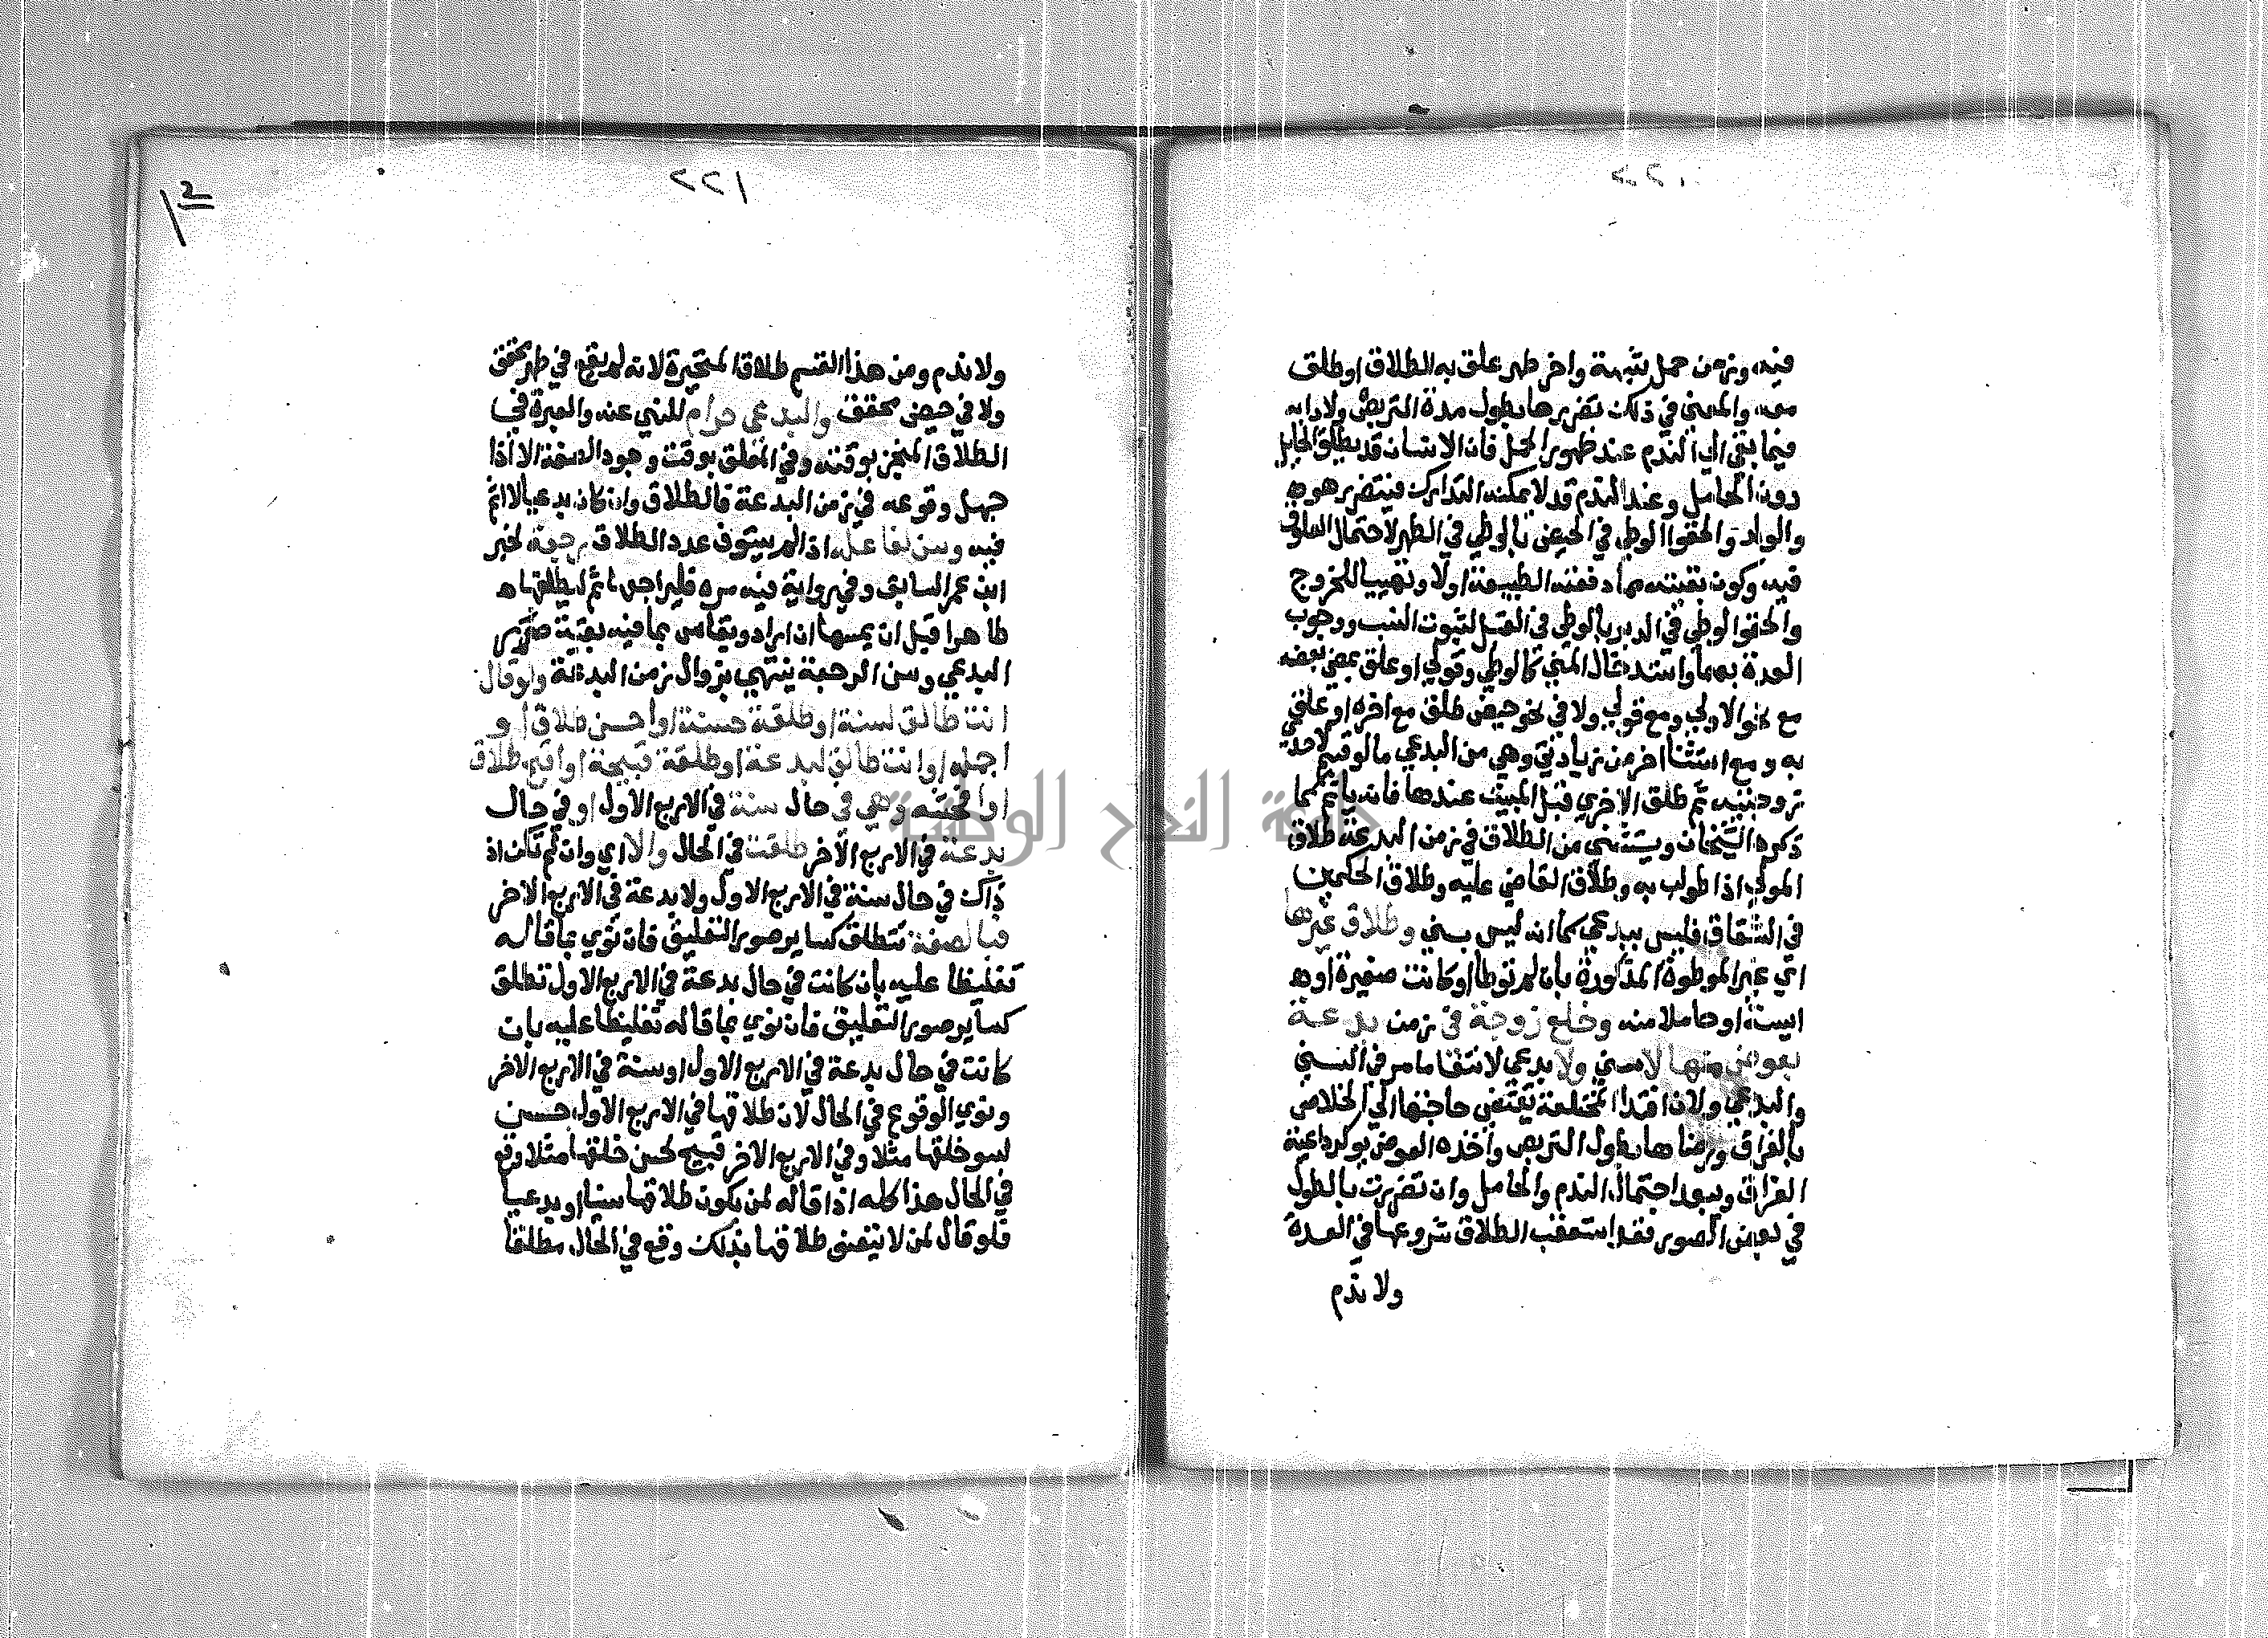 فيه وزمن حمل بشبهة واخر طهر علق به الطلاق اوطلق
معه والمعنى في ذلك تضررها بطول مدة التربص ولادايه
فيما بقي الي الندم عند ظهور الحمل فان الانسان قد يطلق الحايل
دون الحامل وعند الندم قد لا يمكنه التدارك فيتضرر هو
والولد والحقوا الوطي في الحيض بالوطي في الطهر لاحتمال العلوق
فيه وكون بقيته مما دفعته الطبيعة اولا وتهييا للخروج
والحقوا الوطي في الدبر بالوطي في القبل لثبوت النسب ووجوب
العدة بهما واستدخال المني كالوطي وقولي او علق بمضي بعضه
مع نحو الاولي ومع قولي ولا في نحو حيض طلق مع اخره او علق
به ومع استثنا اخر من زيادتي وهي من البدعي مالو قسم لاحدي
زوجتيه ثم طلق الاخري قبل المبيت عندها فانه ياثم كما
ذكره الشيخان ويستثني من الطلاق في زمن البدعة طلاق
المولي اذا طولب به وطلاق القاضي عليه وطلاق الحكمين
في الشقاق فليس ببدعي كما انه ليس بسني وطلاق غيرها
اي غير الموطوة المذكورة بان لم توطا او كانت صغيرة او
ايسة او حاملا منه وخلع زوجة في زمن بدعة
بعوض منها لا سني ولا بدعي لانتفا ما مر في السني
والبدعي ولان افتدا المختلعة يقتضي حاجتها الي الخلاص
بالفراق ورضاها بطول التربص واخذه العوض يوكد داعية
الفراق ويبعد احتمال الندم والحامل وان تضررت بالطول
في بعض الصور فقد استعقب الطلاق شروعها في العدة
ولا ندم
١٢٢
ولا ندم ومن هذا القسم طلاق المتحيرة لانه لم يقع في طهر محقق
ولا في حيض محقق والبدعي حرام للنهي عنه والعبرة في
الطلاق المنجز بوقته وفي المعلق بوقت وجود الصفة الا اذا
جهل وقوعه في زمن البدعة فالطلاق وان كان بدعيا لا اثم
فيه وسن لفاعله اذا لم يستوف عدد الطلاق رجعة لخبر
ابن عمر السابق وفي رواية فيه مره فليراجعها ثم ليطلقها
طاهرا قبل ان يمسها ان اراد ويقاس بما فيه بقية صور
البدعي وسن الرجعة ينتهي بزوال زمن البدعة ولو قال
انت طالق لسنة او طلقة حسنة او احسن طلاق او
اجمله او انت طالق لبدعة او طلقة قبيحة او اقبح طلاق
او افحشه وهي في حال سنة في الاربع الاول او في حال
بدعة في الاربع الاخر طلقت في الحال والا اي وان لم تكن اذ
ذاك في حال سنة في الاربع الاول ولا بدعة في الاربع الاخر
فبالصفة تتطلق كساير صور التعليق فان نوي بما قاله
تغليظا عليه بان كانت في حال بدعة في الاربع الاول تطلق
كساير صور التعليق فان نوي بما قاله تغليظا عليه بان
كانت في حال بدعة في الاربع الاول او سنة في الاربع الاخر
ونوي الوقوع في الحال لان طلاقها في الاربع الاول حسن
لسو خلقها مثلا وفي الاربع الاخر قبيح لحسن خلقها مثلا وقع
في الحال هذا كله اذا قاله لمن يكون طلاقها سنيا او بدعيا
فلو قال لمن لا يتصف طلاقها بذلك وقع في الحال مطلقا
جامعة النجاح الوطنية